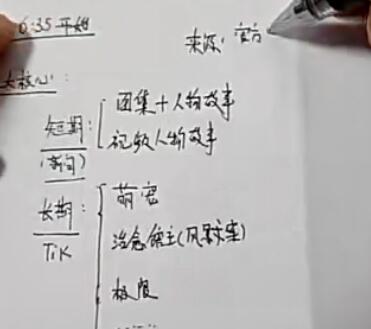 6:35 开始
来源: 官方
大核心:
短期: 图集+人物故事
视频人物故事
长期: 萌宠
TiK
治愈系主(风景文案)
极限